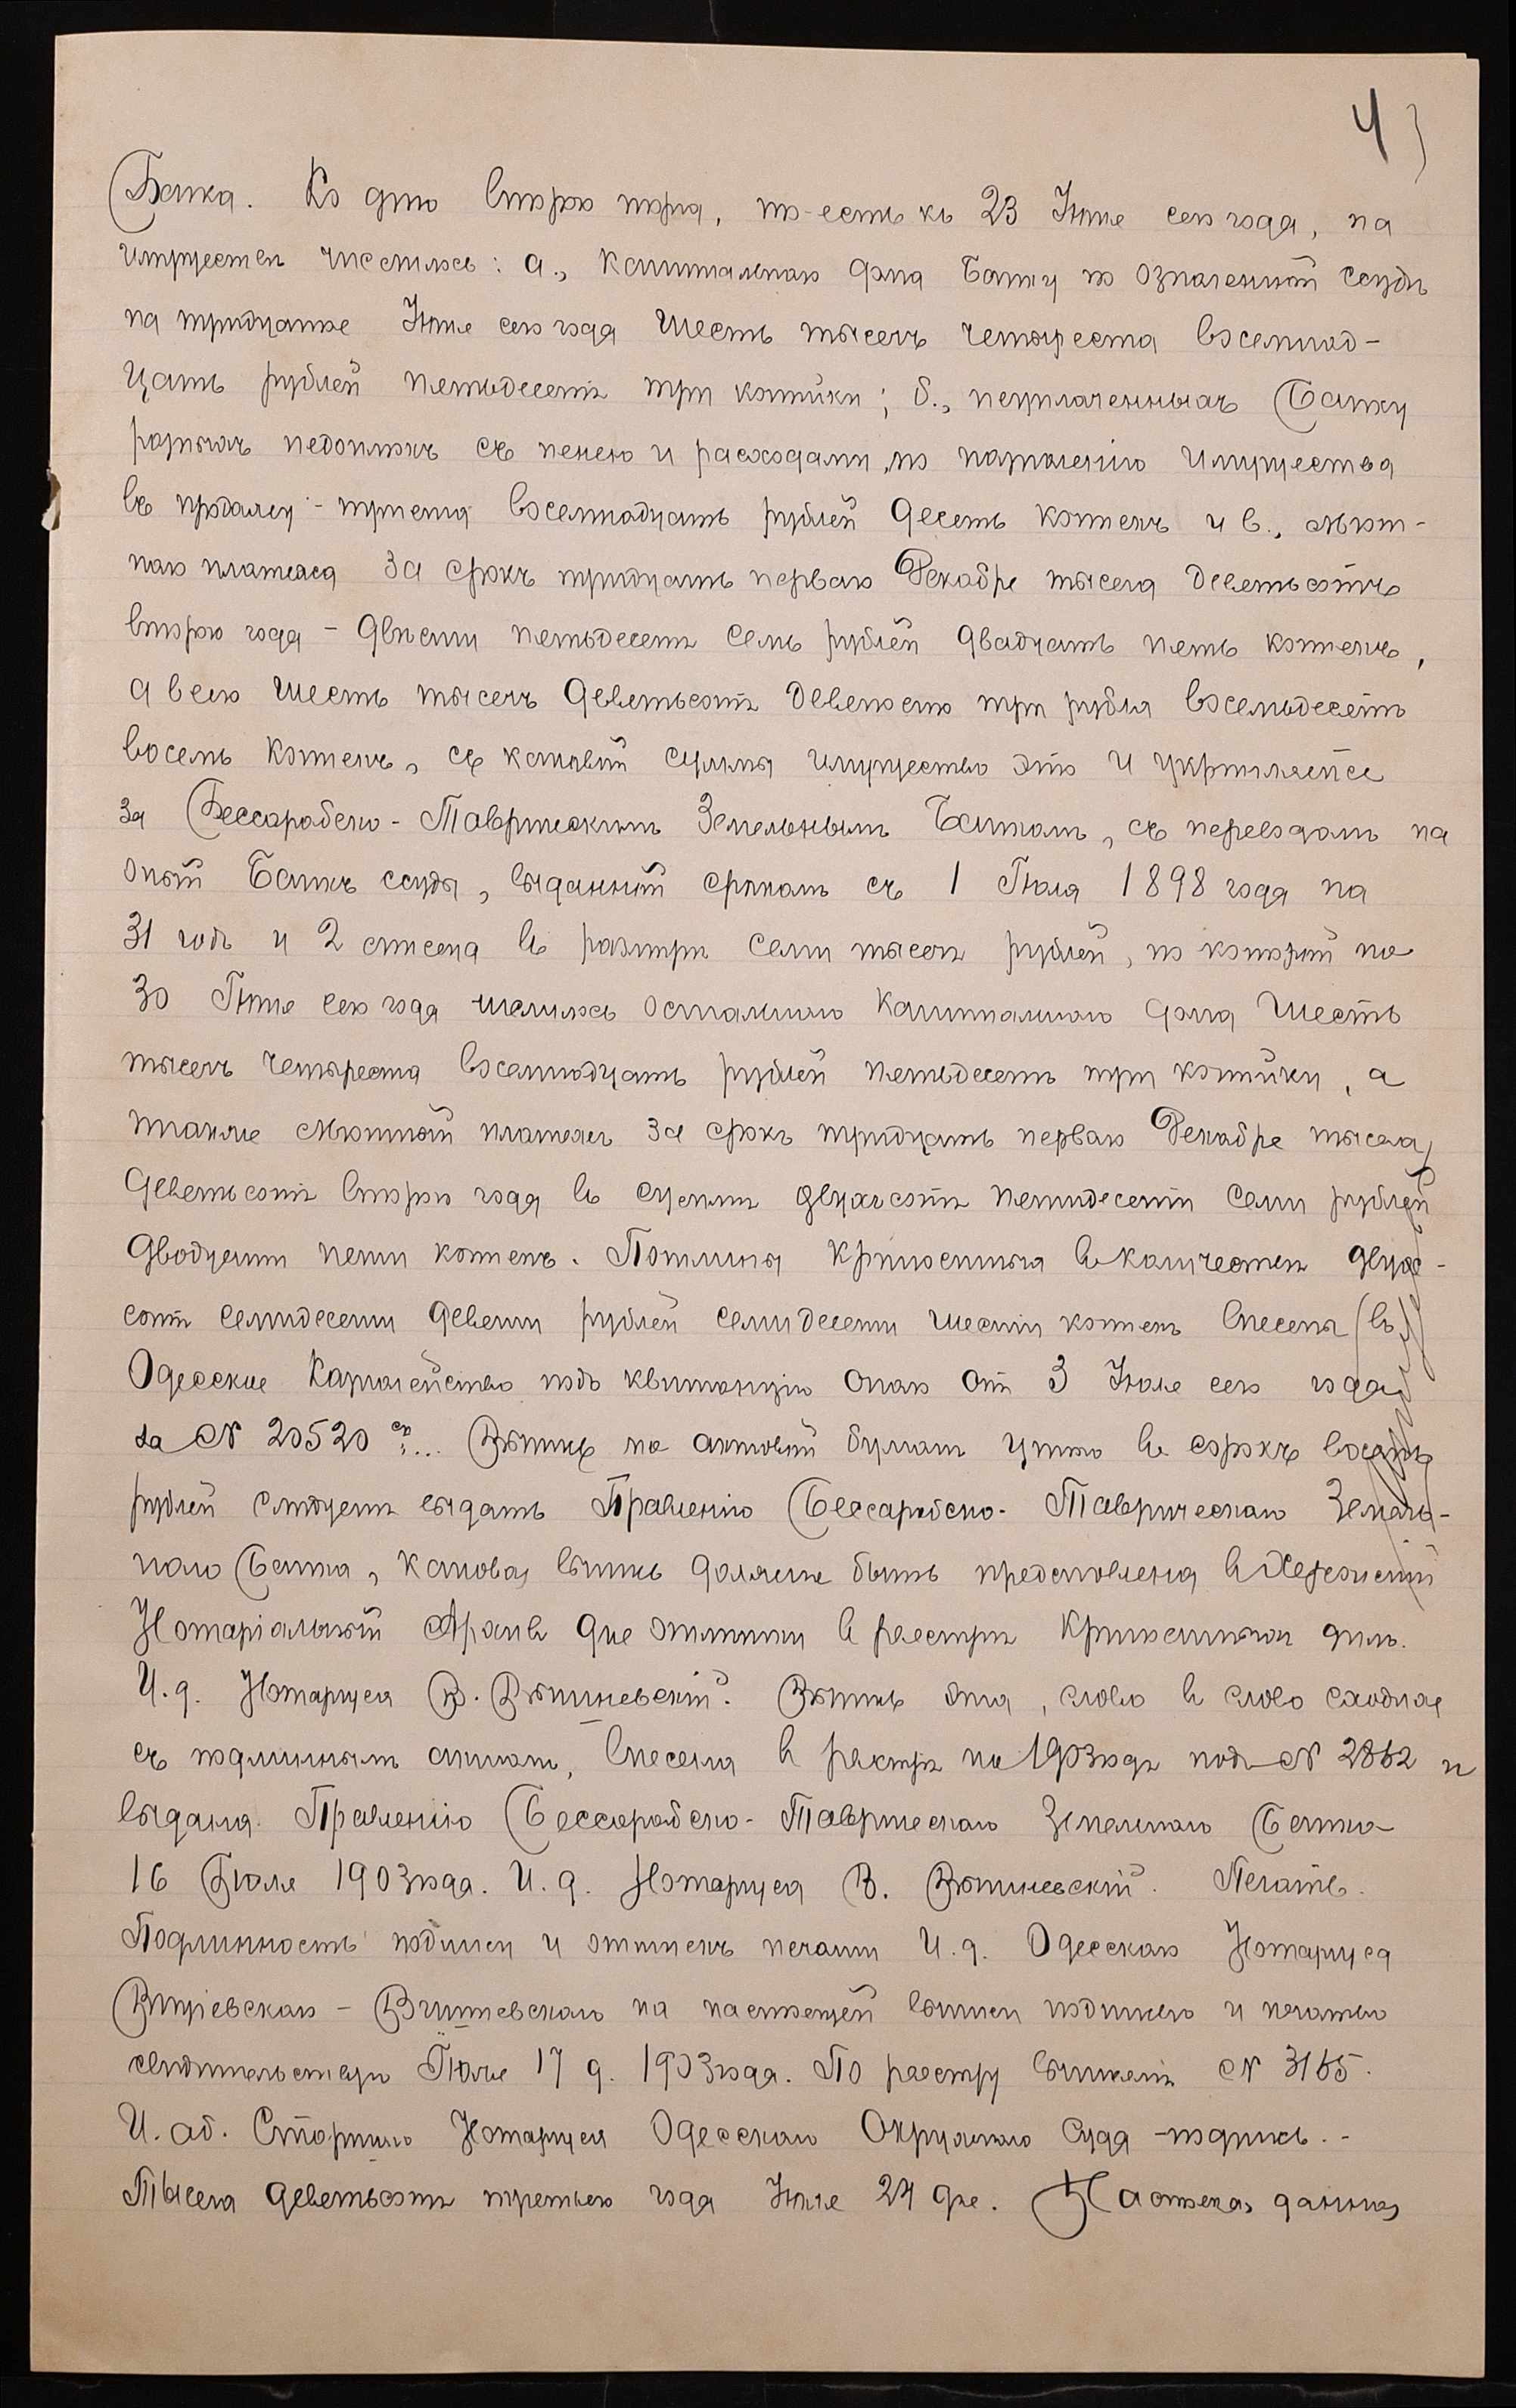 4
Банка. Ко дню второго торга, то-есть къ 23 Іюня сего года, на
имуществѣ числилось: а., капитальнаго долга Банку по означенной ссудѣ
на тридцатое Іюня сего года шесть тысячъ четыреста восемнад-
цать рублей пятьдесятъ три копѣйки; б., неуплаченныхъ Банку
разныхъ недоимокъ съ пенею и расходами, по назначенію имущества
въ продажу - триста восемнадцать рублей десять копѣекъ и в., льгот-
наго платежа за срокъ тридцать перваго Декабря тысяча девятьсотъ
второго года - двѣсти пятьдесятъ семь рублей двадцать пять копѣекъ,
а всего шесть тысячъ девятьсотъ девяносто три рубля восемьдесятъ
восемь копѣекъ, съ каковой суммы имущество это и укрѣпляется
за Бессарабско-Таврическимъ Земельнымъ Банкомъ, съ переводомъ на
оный Банкъ ссуды, выданной срокомъ съ 1 Іюля 1898 года на
31 годъ и 2 мѣсяца въ размѣрѣ семи тысячъ рублей, по которой на
30 Іюня сего года числилось остального капитальнаго долга шесть
тысячъ четыреста восемнадцать рублей пятьдесятъ три копѣйки, а
также льготный платежъ за срокъ тридцать перваго Декабря тысяча
девятьсотъ второго года въ суммѣ двухсотъ пятидесяти семи рублей
двадцати пяти копѣекъ. Пошлины крѣпостныя въ количествѣ двух-
сотъ семидесяти девяти рублей семидесяти шести копѣекъ внесены въ
Одесское Казначейство подъ квитанцію онаго отъ 3 Іюля сего года
за № 20520 Выпись на актовой бумагѣ цѣною въ сорокъ восемь
рублей слѣдуетъ выдать Правленію Бессарабско-Таврическаго Земель-
наго Банка, каковая выпись должна быть представлена въ Херсонскій
Нотаріальный Архивъ для отмѣтки въ реестрѣ крѣпостныхъ дѣлъ.
И. д. Нотаріуса В. Вышневскій. Выпись эта, слово въ слово сходная
съ подлиннымъ актомъ, внесена въ реестръ на 1903 годъ подъ № 2862 и
выдана Правленію Бессарабско-Таврическаго Земельнаго Банка
16 Іюля 1903 года. И. д. Нотаріуса В. Вышневскій. Печать.
Подлинность подписи и оттискъ печати И. д. Одесскаго Нотаріуса
на настоящей выписи подписью и печатью
свидѣтельствую Іюля 17 д. 1903 года. По реестру № 3165.
И. об. Старшаго Нотаріуса Одесскаго Окружнаго Суда - подпись. -
Тысяча девятьсотъ третьяго года Іюля 24 дня. Настоящая данная